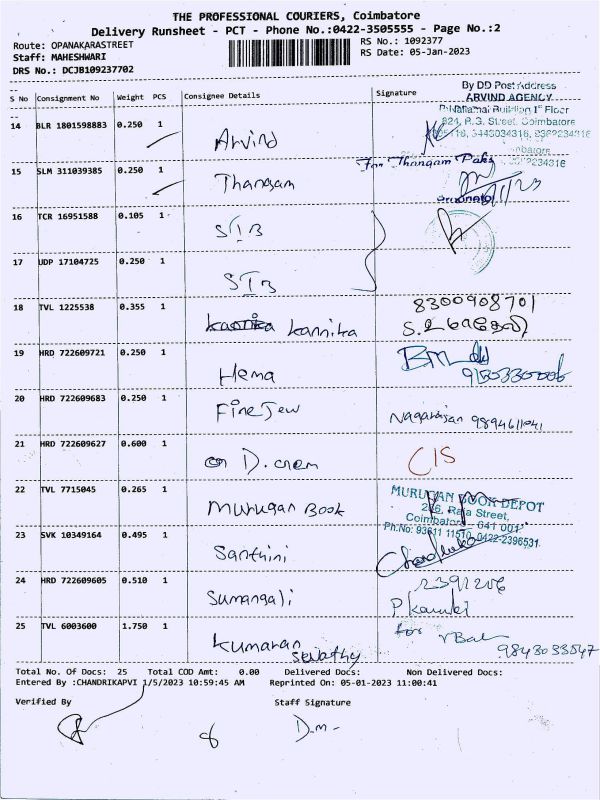 THE PROFESSIONAL COURIERS, Coimbatore
Delivery Runsheet - PCT - Phone No.:0422-3505555 - Page No.:2
Route: OPANAKARASTREET
RS No.: 1092377
Staff: MAHESHWARI
RS Date: 05-Jan-2023
DRS No.: DCJB109237702
S No Consignment No Weight PCS Consignee Details Signature
By DD Post Address
ARVIND AGENCY
14 BLR 1801598883 0.250 1 Arvind
824, R.G. Street, Coimbatore
15 SLM 311039385 0.250 1 Thangam
For Thangam Paks
16 TCR 16951588 0.105 1 STB
17 UDP 17104725 0.250 1 STB
18 TVL 1225538 0.355 1 Kannika
8300908701
19 HRD 722609721 0.250 1 Hema
20 HRD 722609683 0.250 1 Fine Jew Nagarajan 9894611041
21 HRD 722609627 0.600 1 on D. crem CIS
22 TVL 7715045 0.265 1 Murugan Book
MURUGAN BOOK DEPOT
206, Raja Street,
Coimbatore 641 001
Ph.No: 93611 11510, 0422-2396531
23 SVK 10349164 0.495 1 Santhini
24 HRD 722609605 0.510 1 Sumangali
2391206
25 TVL 6003600 1.750 1 Kumaran
for
9843033547
Total No. Of Docs: 25 Total COD Amt: 0.00 Delivered Docs: Non Delivered Docs:
Entered By :CHANDRIKAPVI 1/5/2023 10:59:45 AM Reprinted On: 05-01-2023 11:00:41
Verified By Staff Signature
D.m-